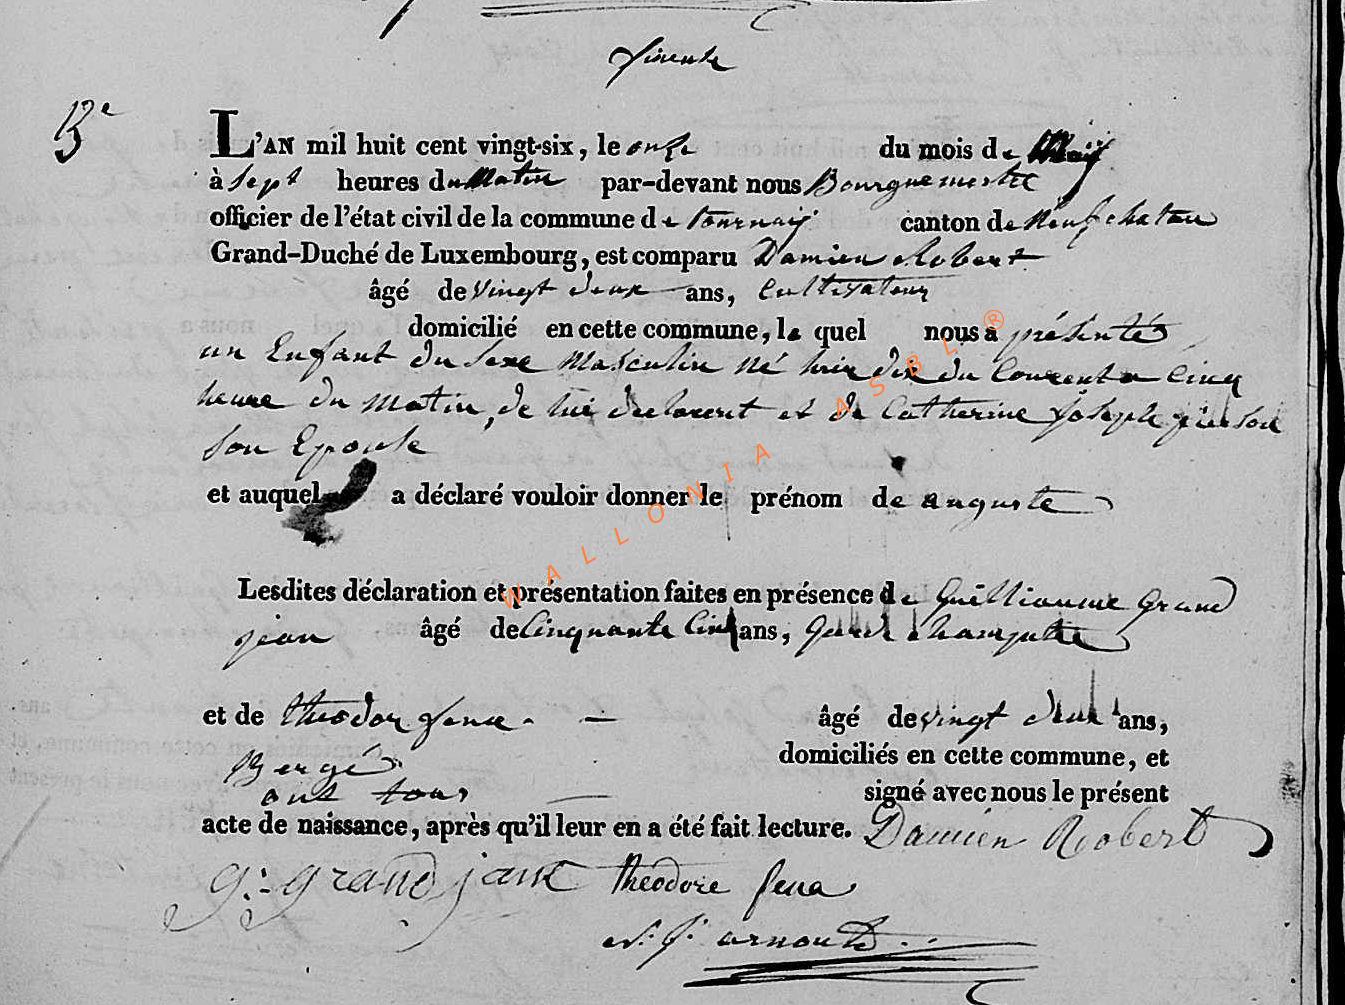 13e
L'AN mil huit cent vingt-six, le onze du mois de May
à Sept heures du Matin par-devant nous Bourguemestre
officier de l'état civil de la commune de tournay canton de Neufchateau
Grand-Duché de Luxembourg, est comparu Damien Robert
âgé de vingt deux ans, Cultivateur
domicilié en cette commune, le quel nous a présenté
un Enfant du Sexe Masculin né hier dix du Courent a Cinq
heure du Matin, de lui declarent et de Catherine Joseph
Son Epouse
et auquel a déclaré vouloir donner le prénom de auguste
Lesdites déclaration et présentation faites en présence de Guilliaume Grand
jean âgé de Cinquante Cinq ans, Garde Champetre
et de théodor âgé de vingt deux ans,
Bergé domiciliés en cette commune, et
ont tous signé avec nous le présent
acte de naissance, après qu'il leur en a été fait lecture. Damien Robert
g: grand jean theodore
arnould
WALLONIA ASBL ®